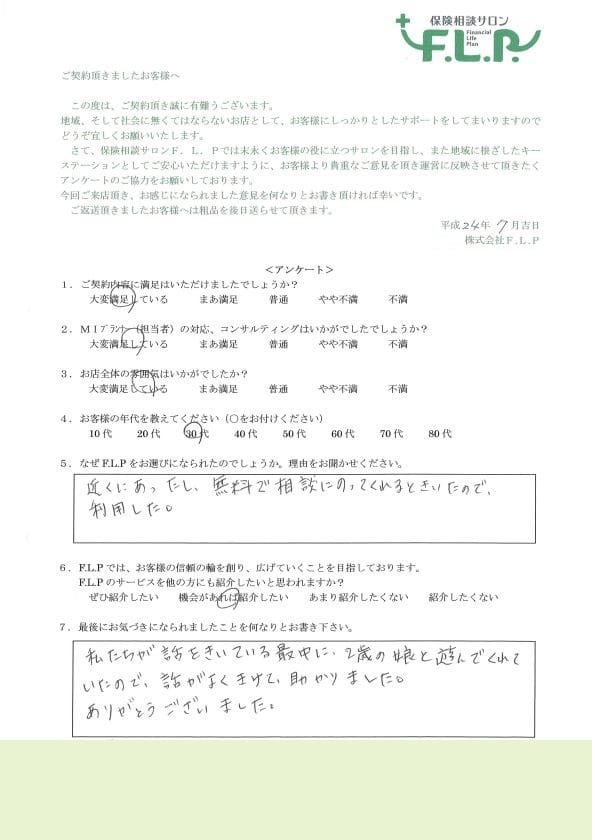 保険相談サロン
F.L.P.
Financial
Life
Plan
ご契約頂きましたお客様へ
この度は、ご契約頂き誠に有難うございます。
地域、そして社会に無くてはならないお店として、お客様にしっかりとしたサポートをしてまいりますので
どうぞ宜しくお願いいたします。
さて、保険相談サロンＦ．Ｌ．Ｐでは末永くお客様の役に立つサロンを目指し、また地域に根ざしたキー
ステーションとしてご安心いただけますように、お客様より貴重なご意見を頂き運営に反映させて頂きたく
アンケートのご協力をお願いしております。
今回ご来店頂き、お感じになられました意見を何なりとお書き頂ければ幸いです。
ご返送頂きましたお客様へは粗品を後日送らせて頂きます。
平成24年 7月吉日
株式会社Ｆ.Ｌ.Ｐ
＜アンケート＞
１．ご契約内容に満足はいただけましたでしょうか？
大変満足している まあ満足 普通 やや不満 不満
２．ＭＩﾌﾟﾗﾝﾅｰ（担当者）の対応、コンサルティングはいかがでしたでしょうか？
大変満足している まあ満足 普通 やや不満 不満
３．お店全体の雰囲気はいかがでしたか？
大変満足している まあ満足 普通 やや不満 不満
４．お客様の年代を教えてください（○をお付けください）
10代 20代 30代 40代 50代 60代 70代 80代
５．なぜF.L.Pをお選びになられたのでしょうか。理由をお聞かせください。
近くにあったし、無料で相談にのってくれるときいたので、
利用した。
６．F.L.Pでは、お客様の信頼の輪を創り、広げていくことを目指しております。
F.L.Pのサービスを他の方にも紹介したいと思われますか？
ぜひ紹介したい 機会があれば紹介したい あまり紹介したくない 紹介したくない
７．最後にお気づきになられましたことを何なりとお書き下さい。
私たちが話をきいている最中に、2歳の娘と遊んでくれて
いたので、話がよくきけて、助かりました。
ありがとうございました。